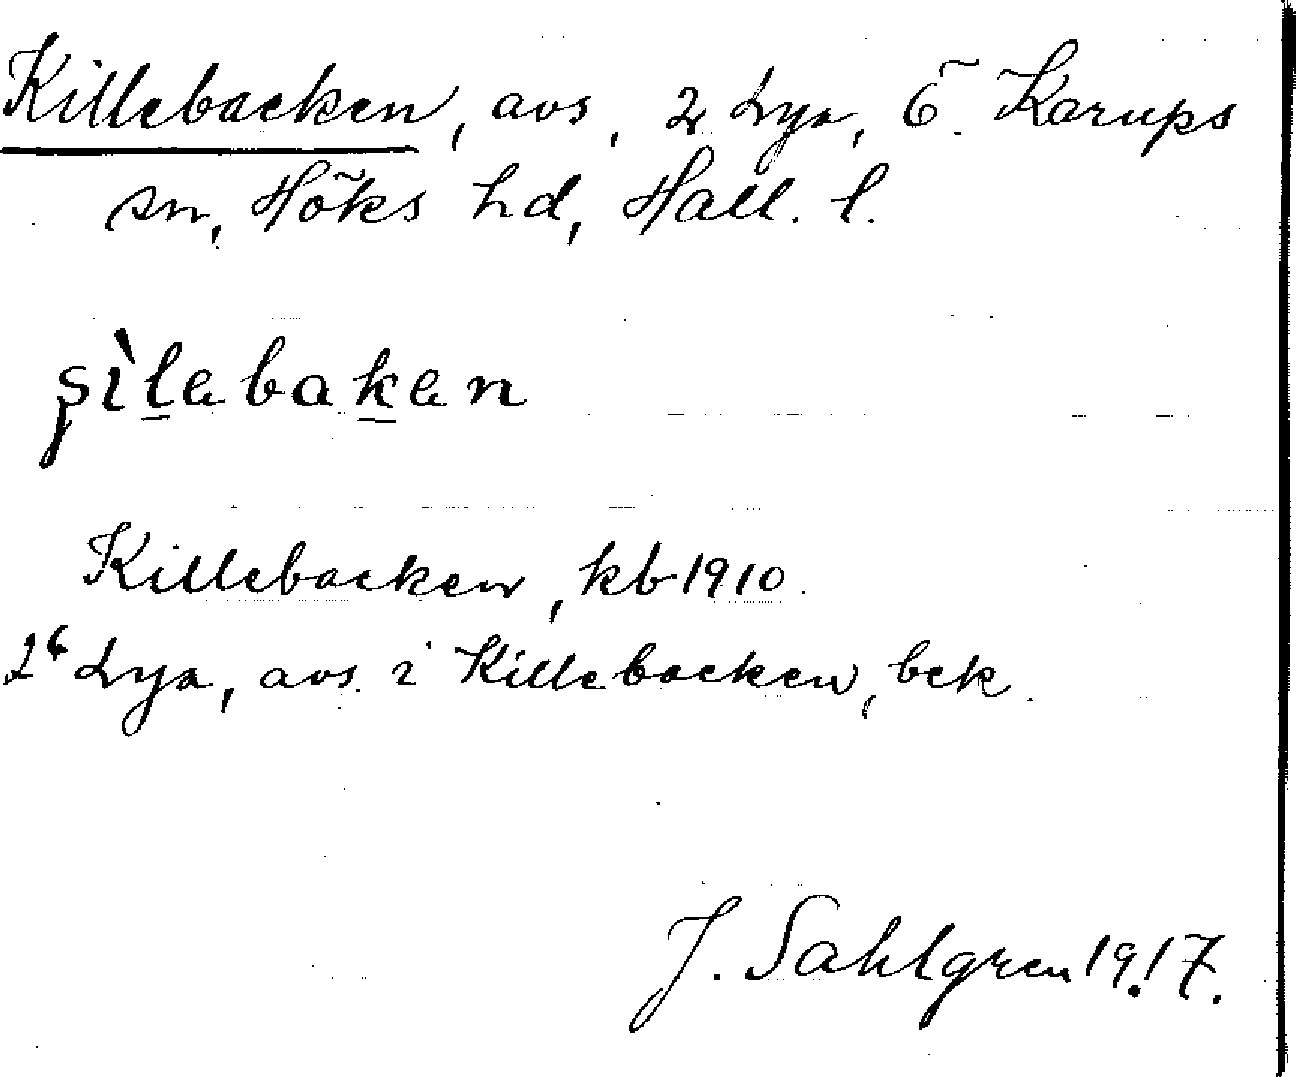 Killebacken, avs. 2 Lya, Ö. Karups
sn, Höks hd, Hall. l.
Killebacken, kb 1910.
2⁶ Lya, avs. i Killebacken, bek.
J. Sahlgren 1917.